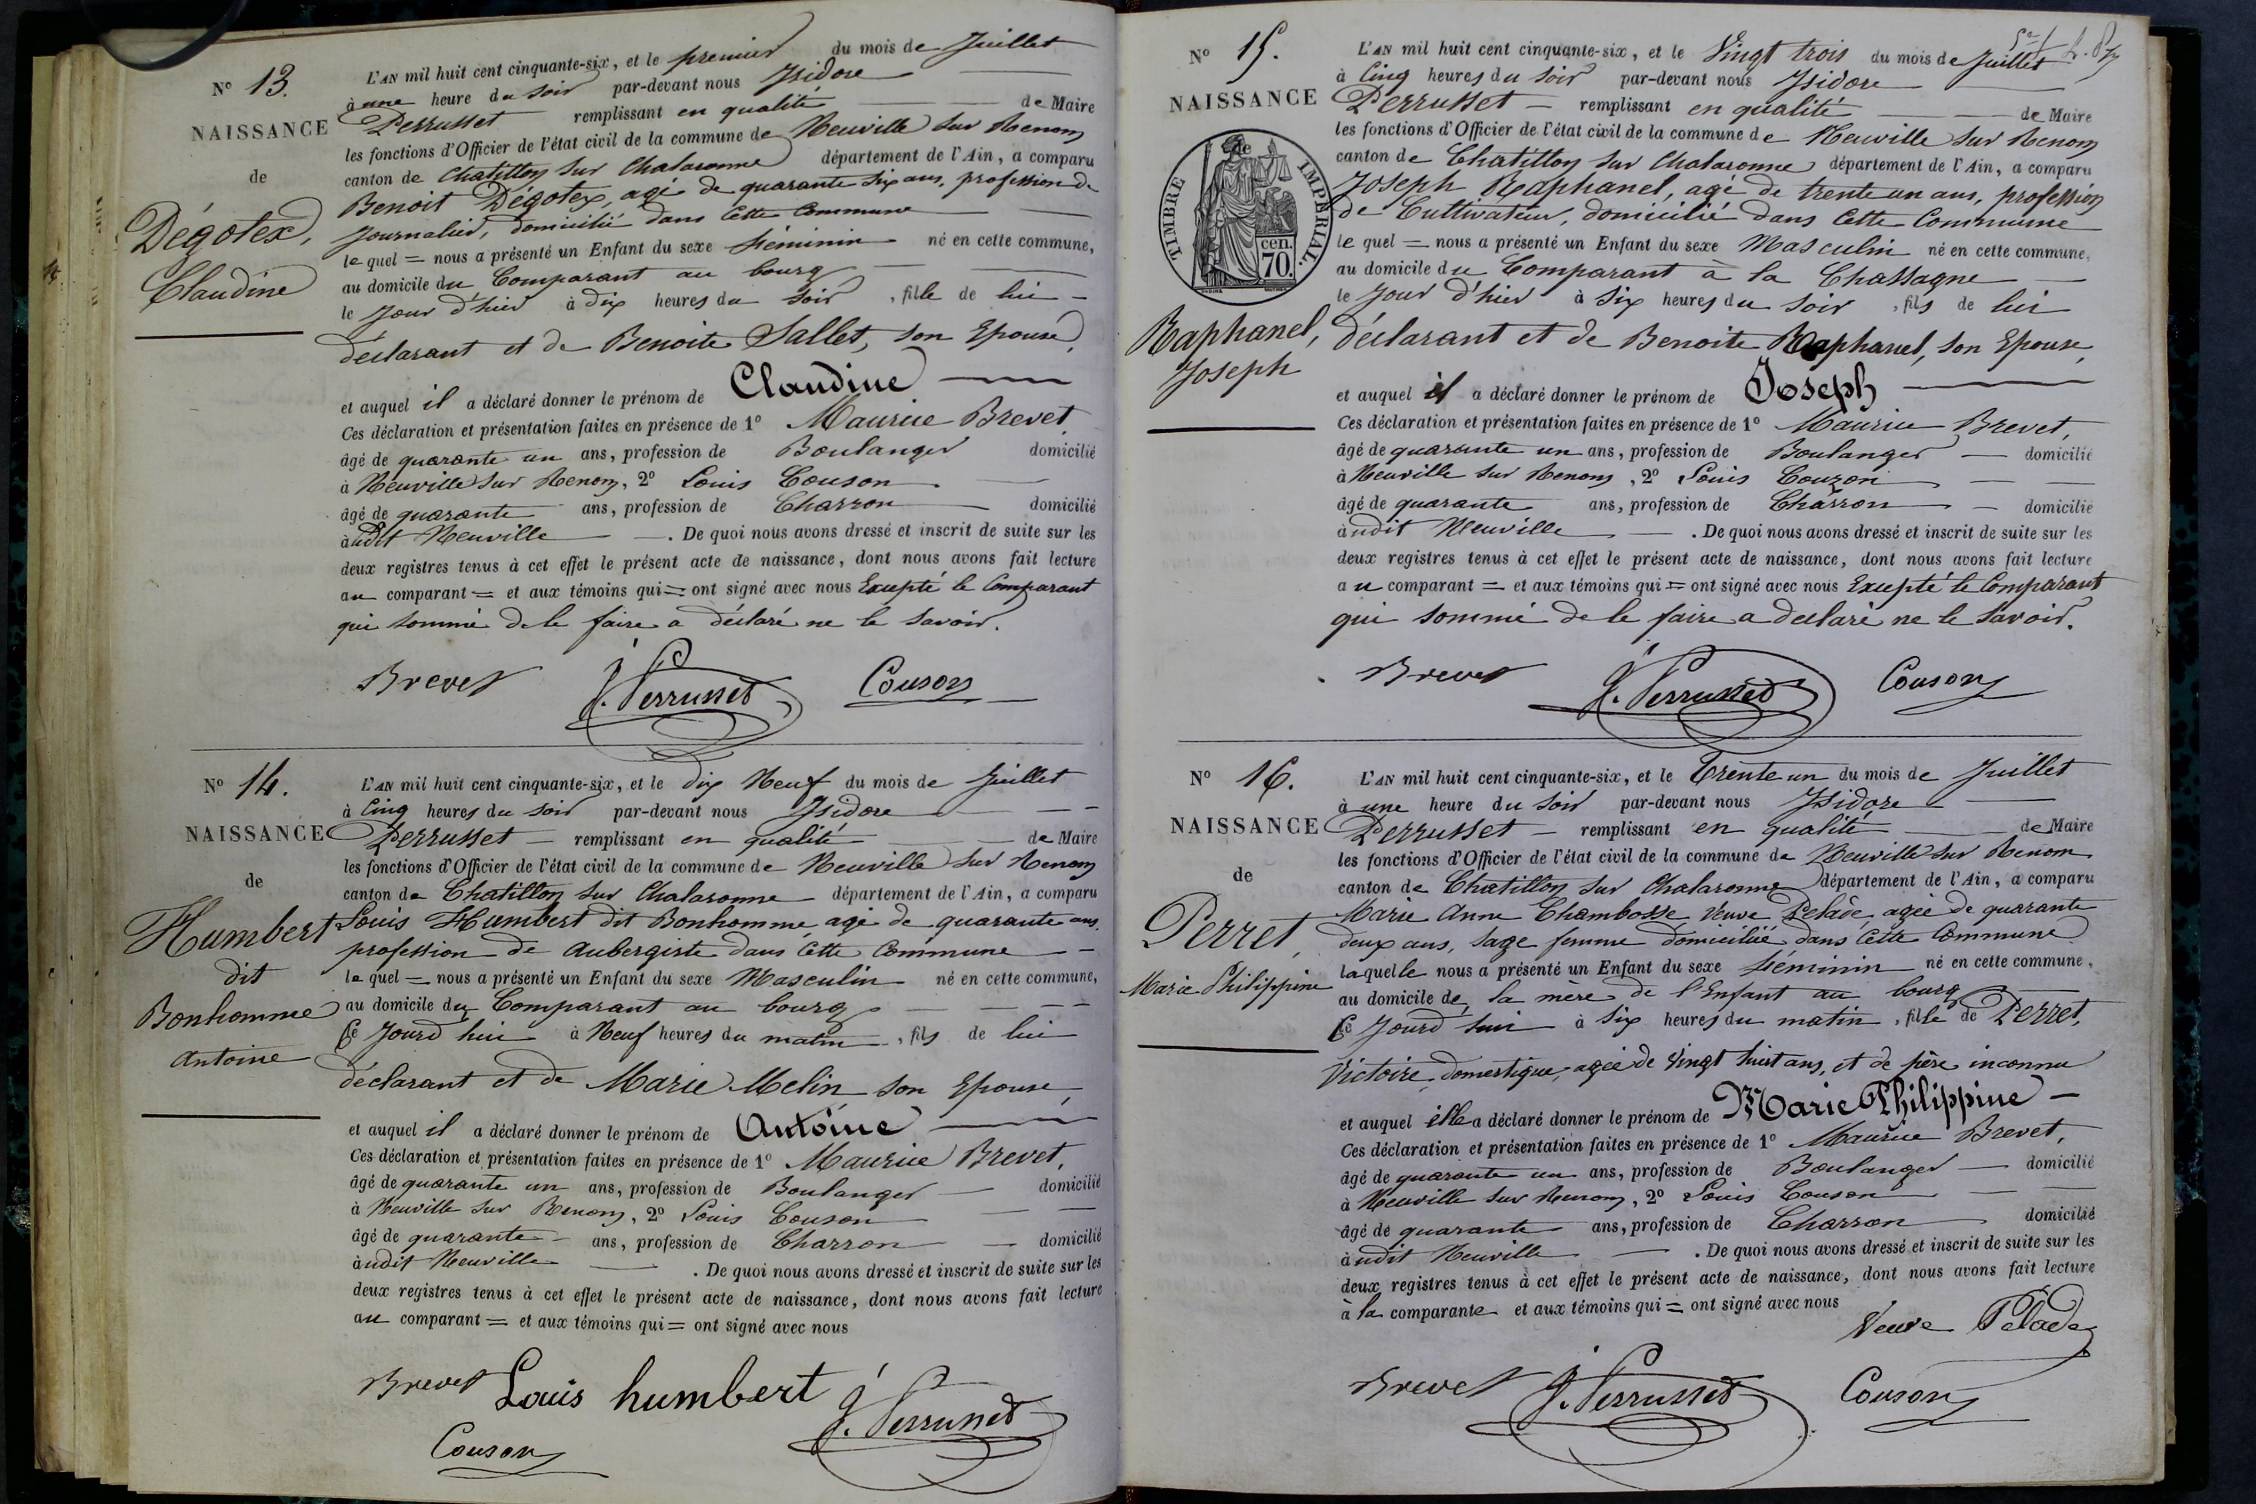 N° 13.
NAISSANCE
de
Dégotex,
Claudine
L'AN mil huit cent cinquante-six, et le premier du mois de Juillet
à une heure du soir par-devant nous Isidore
Perrusset remplissant en qualité de Maire
les fonctions d'Officier de l'état civil de la commune de Neuville sur Renom
canton de Chatillon sur Chalaronne département de l'Ain, a comparu
Benoit Dégotex, agé de quarante six ans, profession de
Journalier, domicilié dans cette Commune
le quel = nous a présenté un Enfant du sexe féminin né en cette commune,
au domicile du Comparant au bourg
le Jour d'hier à dix heures du soir, fille de lui
déclarant et de Benoite Sallet, son Epouse,
et auquel il a déclaré donner le prénom de Claudine
Ces déclaration et présentation faites en présence de 1° Maurice Brevet,
âgé de quarante un ans, profession de Boulanger domicilié
à Neuville sur Renom, 2° Louis Couson
âgé de quarante ans, profession de Charron domicilié
àudit Neuville. De quoi nous avons dressé et inscrit de suite sur les
deux registres tenus à cet effet le présent acte de naissance, dont nous avons fait lecture
au comparant = et aux témoins qui = ont signé avec nous Excepté le Comparant
qui sommé de le faire a déclaré ne le savoir.
Brevet J. Perrusset Couson
N° 14.
NAISSANCE
de
Humbert
dit
Bonhomme
Antoine
L'AN mil huit cent cinquante-six, et le dix Neuf du mois de Juillet
à Cinq heures du soir par-devant nous Isidore
Perrusset remplissant en qualité de Maire
les fonctions d'Officier de l'état civil de la commune de Neuville sur Renom
canton de Chatillon sur Chalaronne département de l'Ain, a comparu
Louis Humbert dit Bonhomme agé de quarante ans,
profession de Aubergiste dans cette Commune
le quel = nous a présenté un Enfant du sexe Masculin né en cette commune,
au domicile du Comparant au bourg
Ce Jourd'hui à Neuf heures du matin, fils de lui
déclarant et de Marie Melin son Epouse,
et auquel il a déclaré donner le prénom de Antoine
Ces déclaration et présentation faites en présence de 1° Maurice Brevet,
âgé de quarante un ans, profession de Boulanger domicilié
à Neuville sur Renom, 2° Louis Couson
âgé de quarante ans, profession de Charron domicilié
àudit Neuville. De quoi nous avons dressé et inscrit de suite sur les
deux registres tenus à cet effet le présent acte de naissance, dont nous avons fait lecture
au comparant = et aux témoins qui = ont signé avec nous
Brevet Louis humbert J. Perrusset
Couson
N° 15.
NAISSANCE
de
TIMBRE IMPÉRIAL.
70. cen.
Raphanel,
Joseph
L'AN mil huit cent cinquante-six, et le Vingt trois du mois de Juillet
à Cinq heures du soir par-devant nous Isidore
Perrusset remplissant en qualité de Maire
les fonctions d'Officier de l'état civil de la commune de Neuville sur Renom
canton de Chatillon sur Chalaronne département de l'Ain, a comparu
Joseph Raphanel, agé de trente un ans, profession
de Cultivateur, domicilié dans cette Commune
le quel = nous a présenté un Enfant du sexe Masculin né en cette commune,
au domicile du Comparant à la Chassagne
le Jour d'hier à Six heures du soir, fils de lui
déclarant et de Benoite Raphanel, son Epouse,
et auquel il a déclaré donner le prénom de Joseph
Ces déclaration et présentation faites en présence de 1° Maurice Brevet,
âgé de quarante un ans, profession de Boulanger domicilié
à Neuville sur Renom, 2° Louis Couzon
âgé de quarante ans, profession de Charron domicilié
àudit Neuville. De quoi nous avons dressé et inscrit de suite sur les
deux registres tenus à cet effet le présent acte de naissance, dont nous avons fait lecture
au comparant = et aux témoins qui = ont signé avec nous Excepté le Comparant
qui sommé de le faire a declaré ne le savoir.
Brevet J. Perrusset Couson
N° 16.
NAISSANCE
de
Perret,
Marie Philippine
L'AN mil huit cent cinquante-six, et le Trente un du mois de Juillet
à une heure du soir par-devant nous Isidore
Perrusset remplissant en qualité de Maire
les fonctions d'Officier de l'état civil de la commune de Neuville sur Renom
canton de Chatillon sur Chalaronne département de l'Ain, a comparu
Marie Anne Chambosse Veuve Pelade, agée de quarante
deux ans, sage femme domiciliée dans cette Commune
laquelle nous a présenté un Enfant du sexe féminin né en cette commune,
au domicile de la mère de l'Enfant au bourg
Ce Jourd'hui à Six heures du matin, fille de Perret,
Victoire, domestique, agée de Vingt huit ans, et de père inconnu
et auquel elle a déclaré donner le prénom de Marie Philippine
Ces déclaration et présentation faites en présence de 1° Maurice Brevet,
âgé de quarante un ans, profession de Boulanger domicilié
à Neuville sur Renom, 2° Louis Couson
âgé de quarante ans, profession de Charron domicilié
àudit Neuville. De quoi nous avons dressé et inscrit de suite sur les
deux registres tenus à cet effet le présent acte de naissance, dont nous avons fait lecture
à la comparante et aux témoins qui = ont signé avec nous
Veuve Pelade
Brevet J. Perrusset Couson